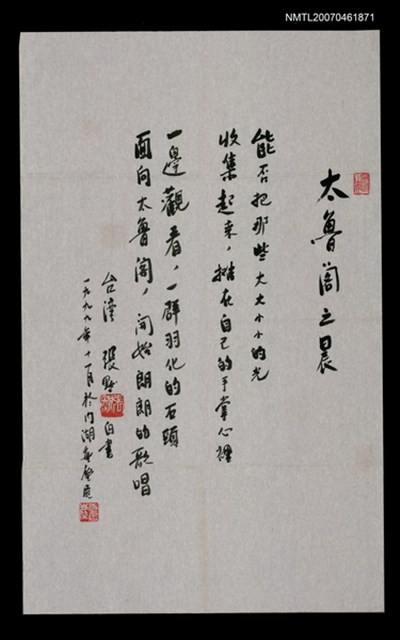 NMTL20070461871
太魯閣之晨
能否把那些大大小小的光
收集起來，擁在自己的手掌心裡
一邊觀看，一群羽化的石頭
面向太魯閣，開始朗朗的歌唱
台灣 張默 自書
一九九九年十一月於內湖無塵居